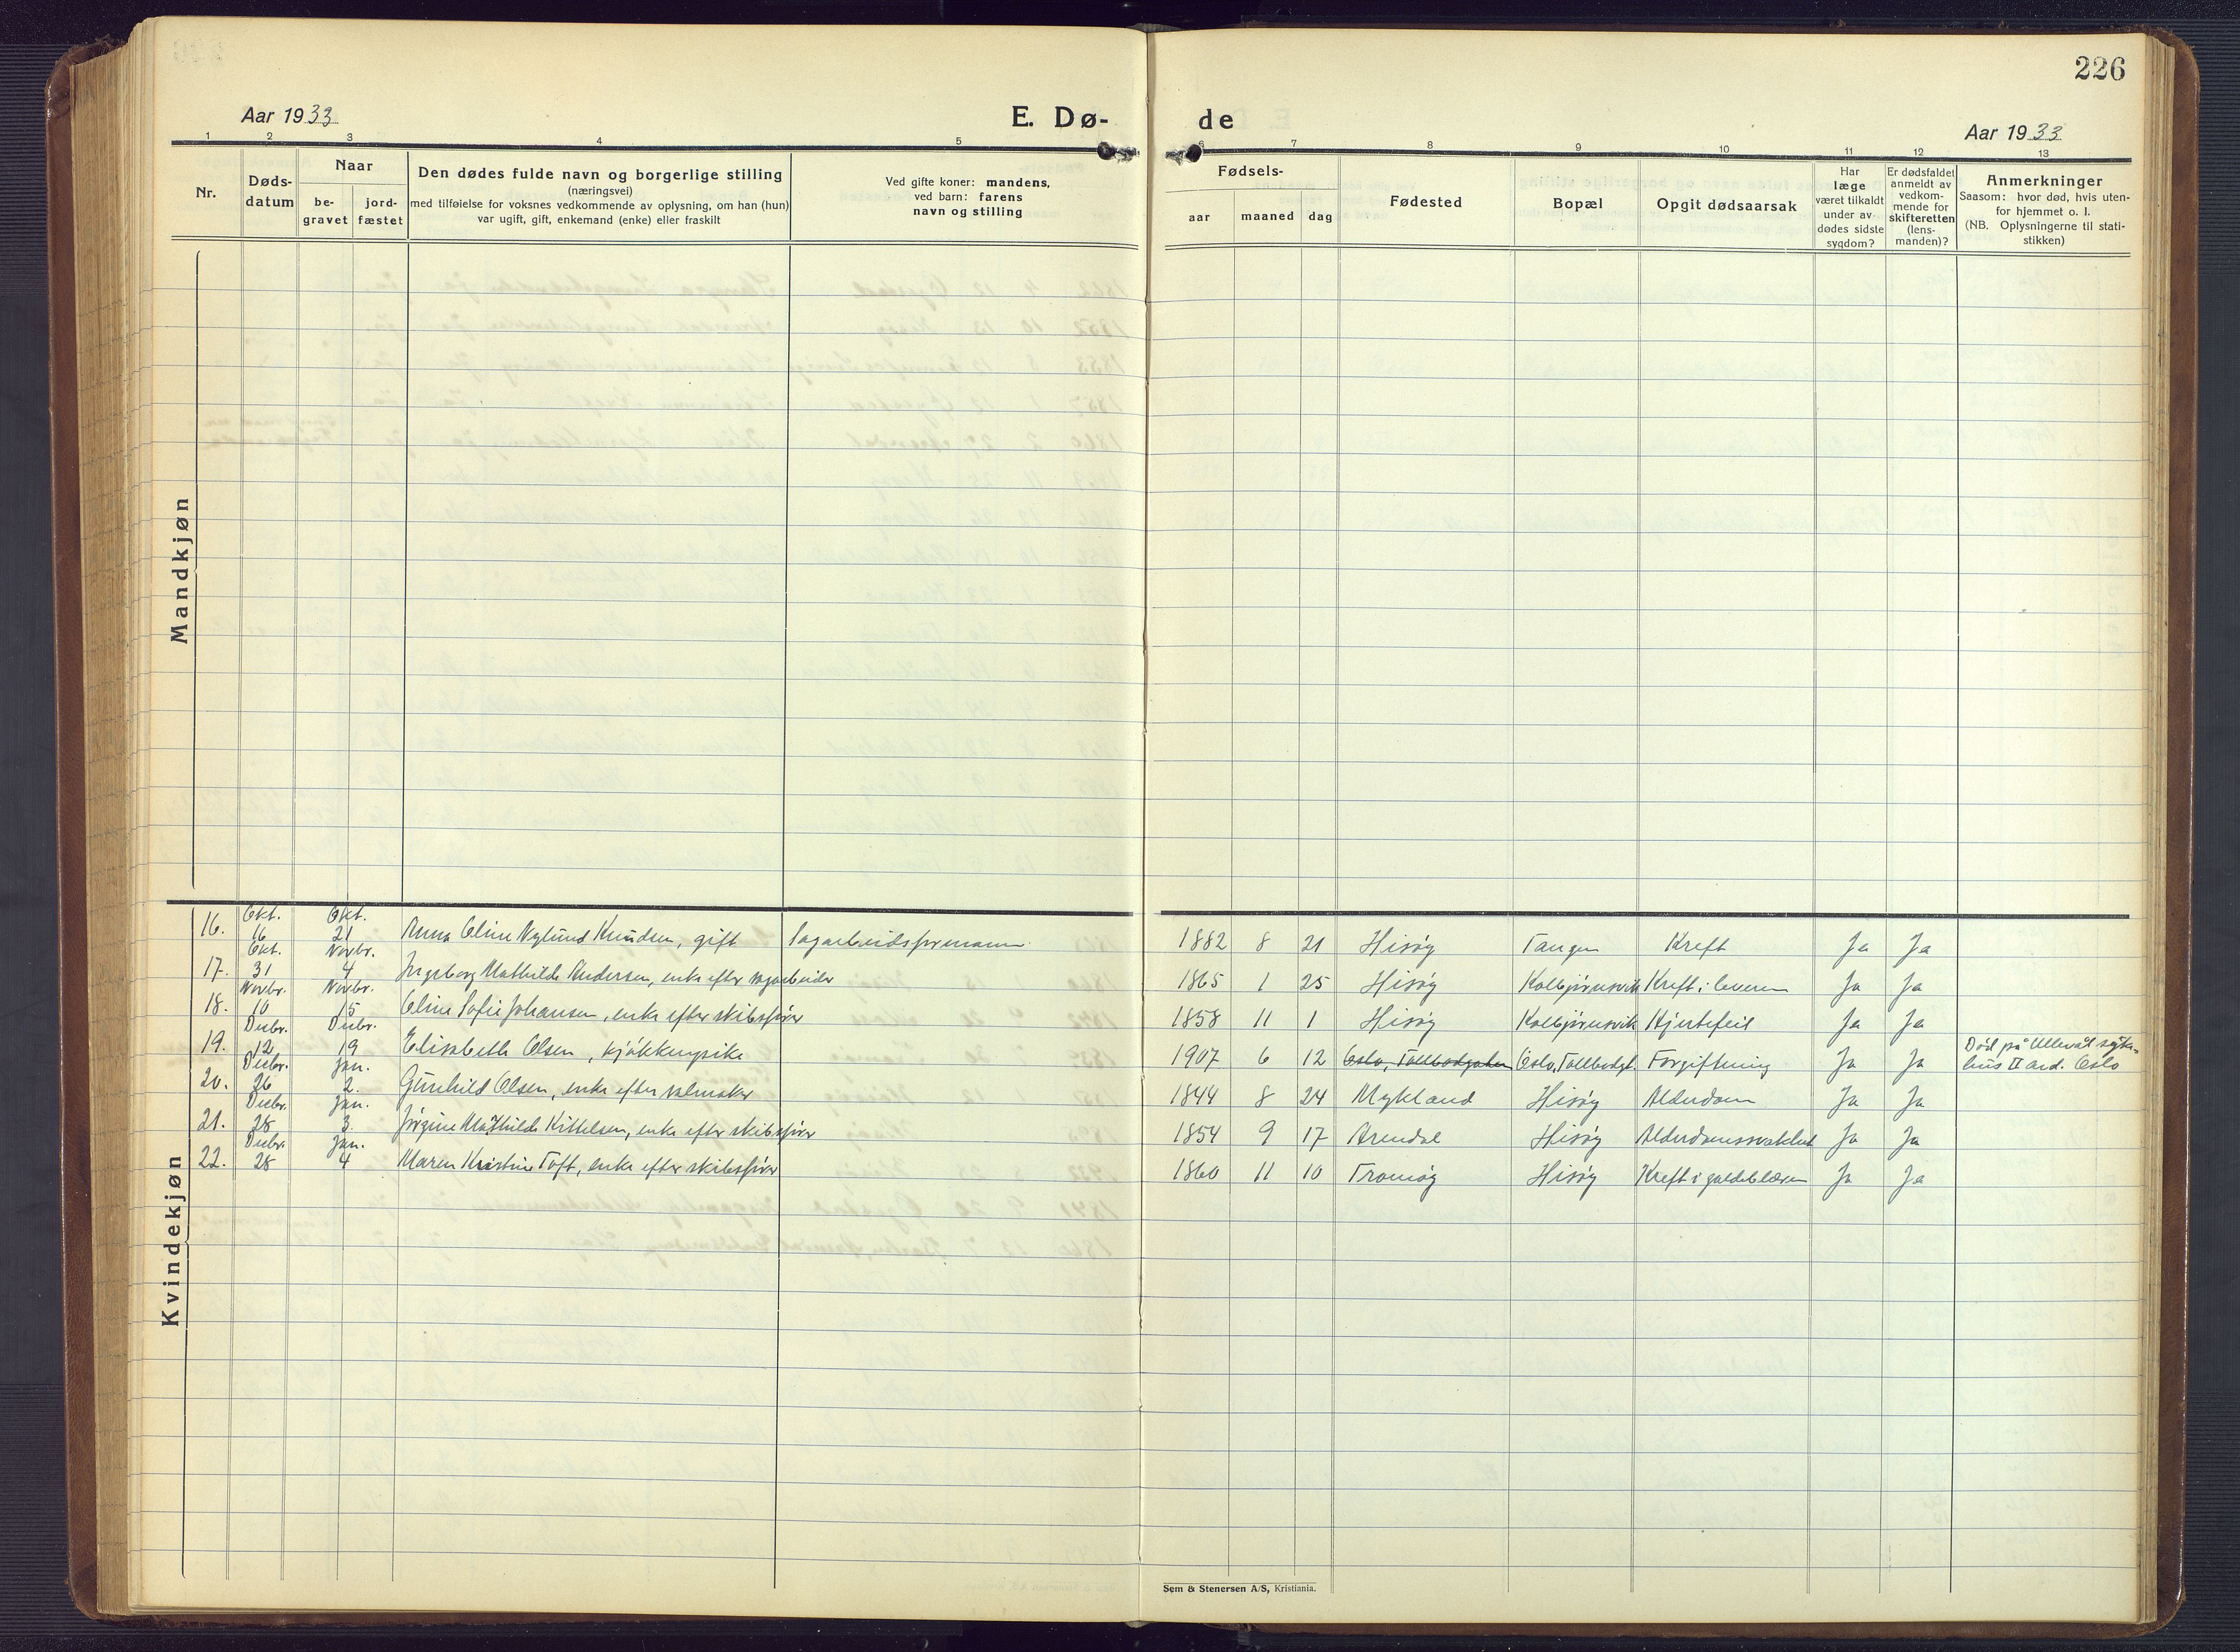 226
Aar 1933
E. Dø-
de
Aar 1933
1 2 3 4 5 6 7 8 9 10 11 12 13
Nr.
Døds-
datum
Naar
be-
gravet
jord-
fæstet
Den dødes fulde navn og borgerlige stilling
(næringsvei)
med tilføielse for voksnes vedkommende av oplysning, om han (hun)
var ugift, gift, enkemand (enke) eller fraskilt
Ved gifte koner: mandens,
ved barn: farens
navn og stilling
Fødsels-
aar maaned dag
Fødested
Bopæl
Opgit dødsaarsak
Har
læge
været tilkaldt
under av-
dødes sidste
sygdom?
Er dødsfaldet
anmeldt av
vedkom-
mende for
skifteretten
(lens-
manden)?
Anmerkninger
Saasom: hvor død, hvis uten-
for hjemmet o. l.
(NB. Oplysningerne til stati-
stikken)
Mandkjøn
Kvindekjøn
16. Okt. 16 Okt. 21 Anna Oline Nylund Knudsen, gift Sagarbeidsformann 1882 8 21 Hisøy Tangen Kreft Ja Ja
17. Okt. 31 Novbr. 4 Ingeborg Mathilde Andersen, enke efter sagarbeider 1865 1 25 Hisøy Kolbjørnsvik Kreft i leveren Ja Ja
18. Novbr. 10 Novbr. 15 Oline Sofie Johansen, enke efter skibsfører 1858 11 1 Hisøy Kolbjørnsvik Hjertefeil Ja Ja
19. Decbr. 12 Decbr. 19 Elisabeth Olsen, kjøkkenpike 1907 6 12 Oslo, Tollbodgaten Oslo, Tollbodgt. Forgiftning Ja Ja Død på Ullevål syke-
hus II avd. Oslo
20. Decbr. 26 Jan. 2. Gunhild Olsen, enke efter 1844 8 24 Mykland Hisøy Alderdom Ja Ja
21. Decbr. 28 Jan. 3. Jørgine Mathilde Kittelsen, enke efter skibsfører 1854 9 17 Arendal Hisøy Alderdomssvakhet Ja Ja
22. Decbr. 28 Jan. 4 Maren Kristine Toft, enke efter skibsfører 1860 11 10 Tromøy Hisøy Kreft i galdeblæren Ja Ja
Sem & Stenersen A/S, Kristiania.